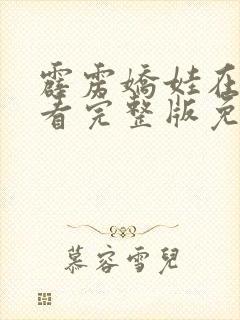 霹雳嬌娃在
看完整版免
慕容雪兒